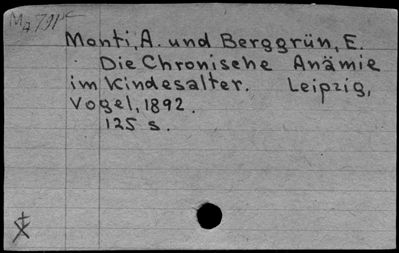 Monti, A. und Berggrün, E.
Die Chronische Anämie
im Kindesalter. Leipzig,
Vogel, 1892.
125 s.